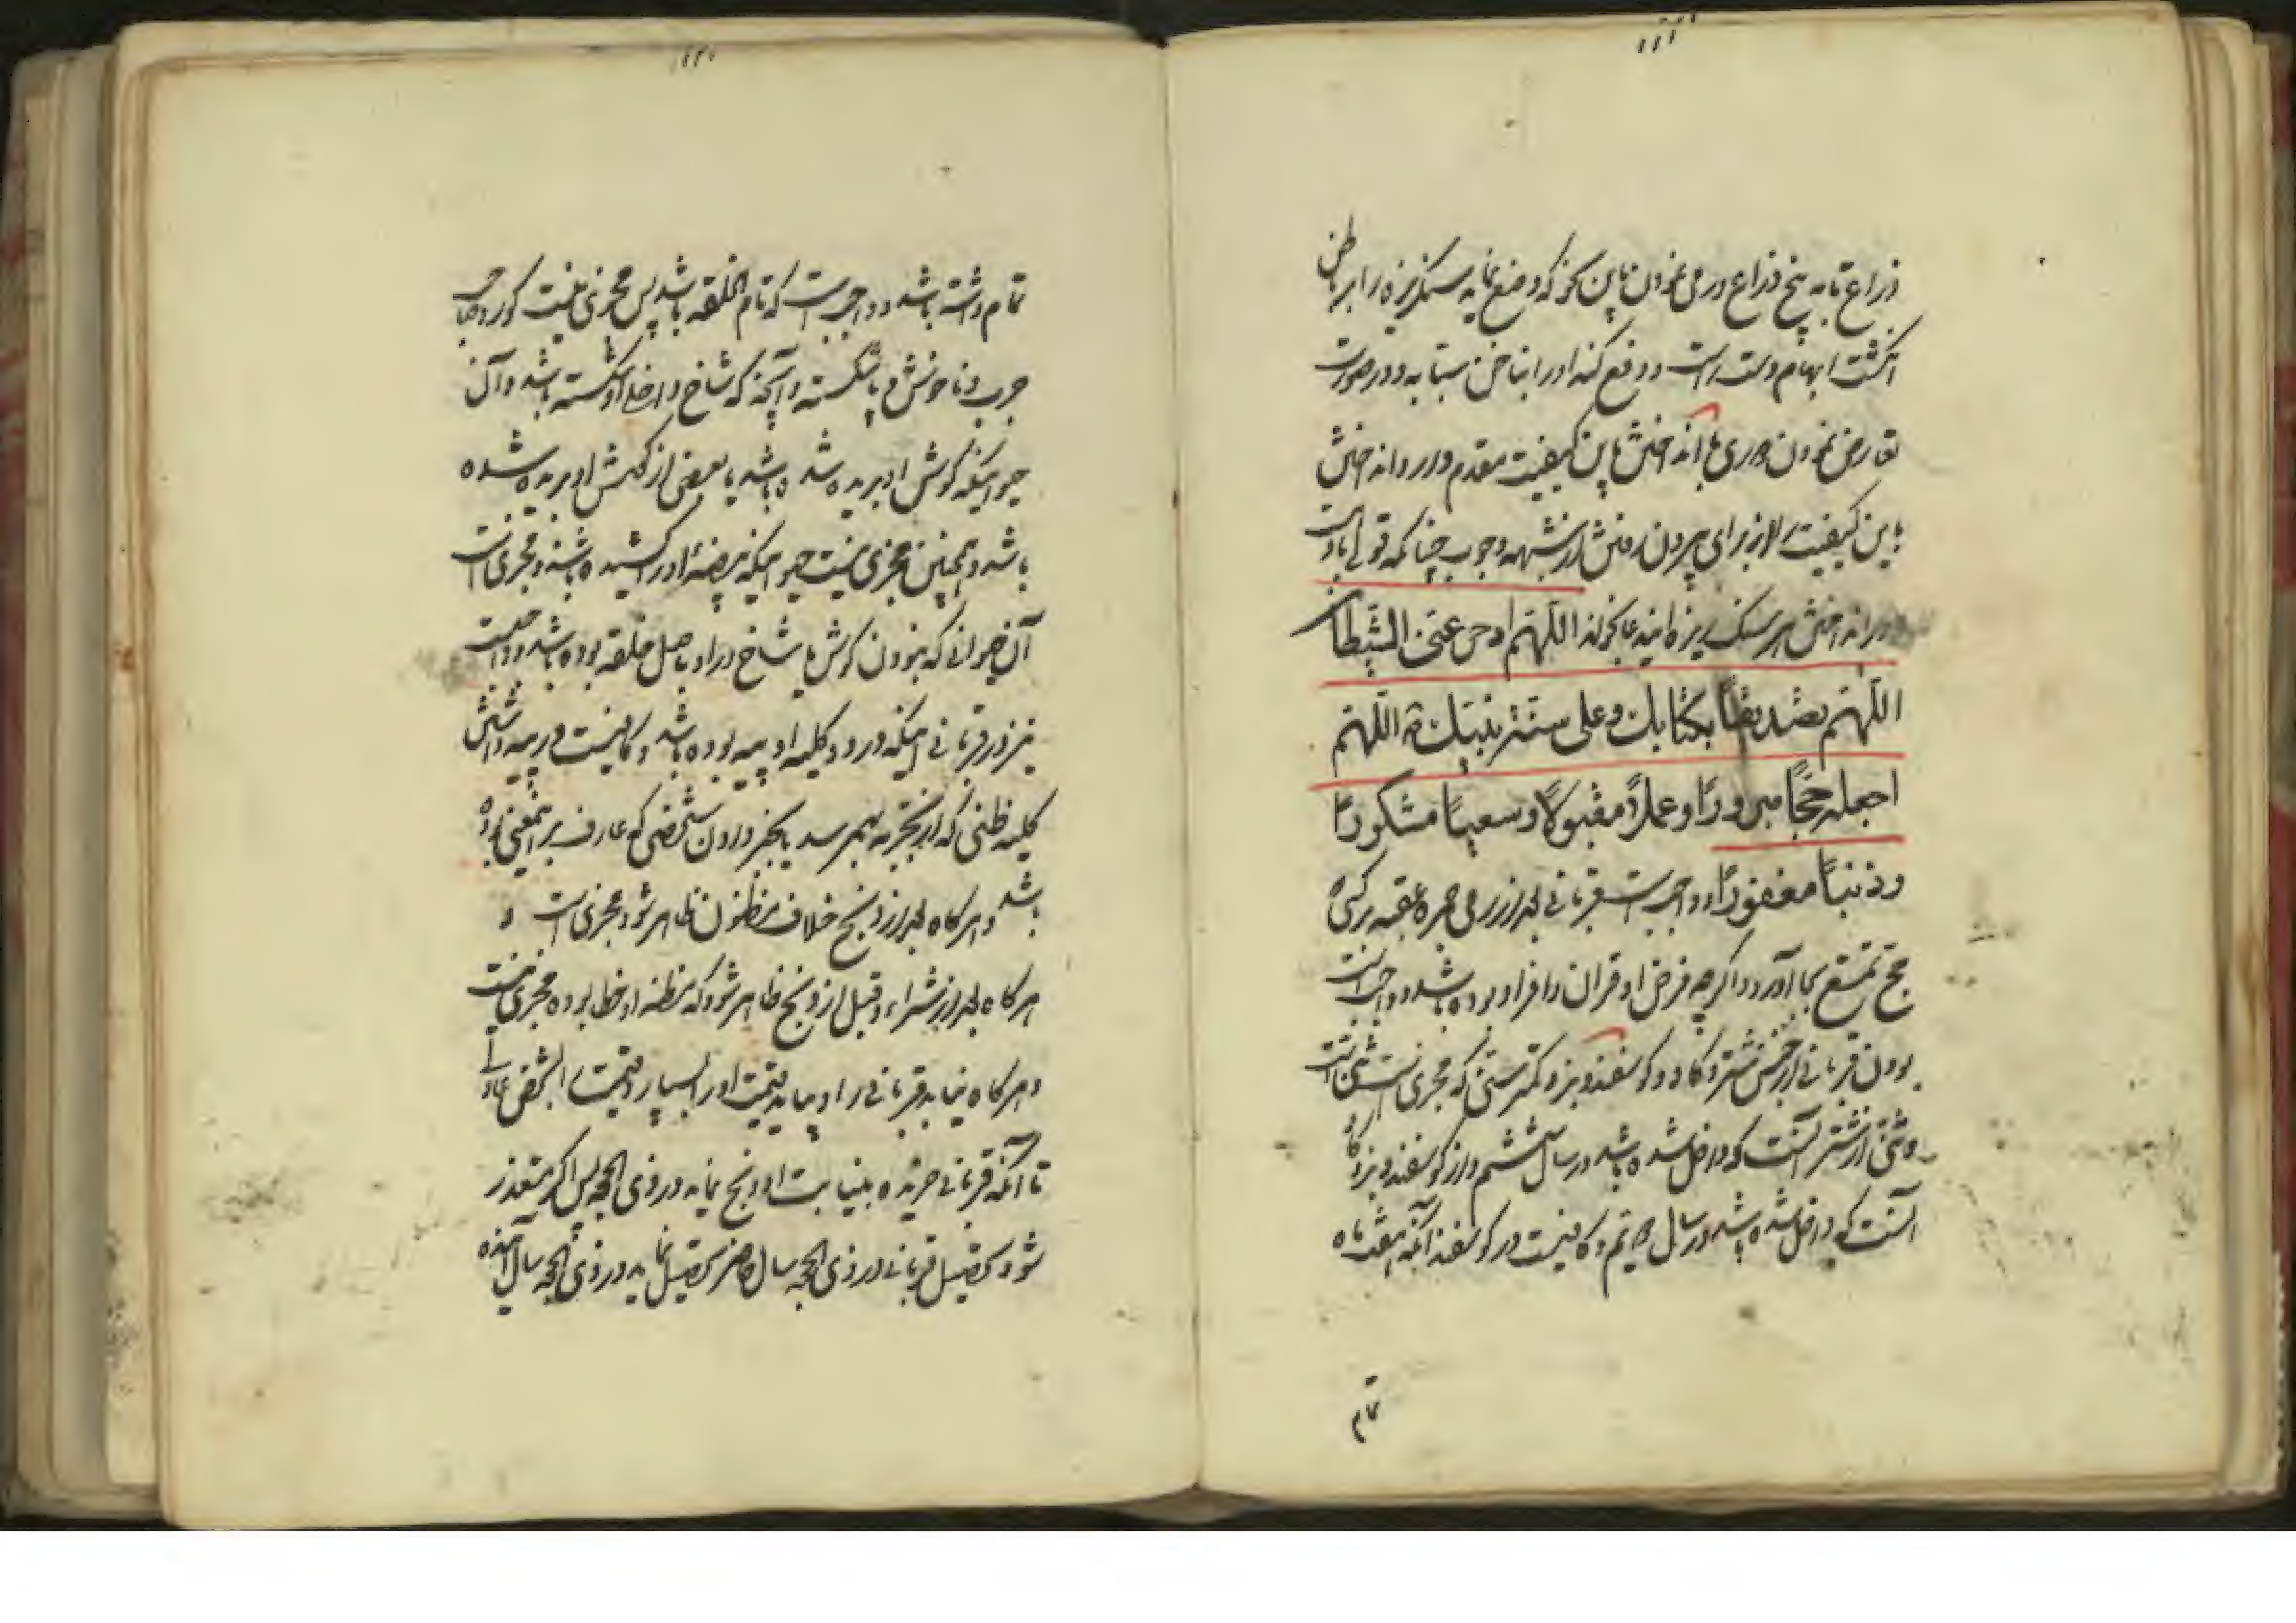 ۱۱۱
ذراع تا به پنج ذراع و رمی نمودن باین نحو که وضع نماید سنکریزه را بر باطن
انکشت ابهام دست راست و دفع کند او را بناخن سبابه و در صورت
تعارض نمودن رمی با انداختن باین کیفیت مقدم دارد انداختن
باین کیفیت را از برای بیرون رفتن از شبهه وجوب چنانکه قولی باوست
در انداختن هر سنک ریزه این دعا بخواند اللهم ادحر عنی الشیطان
اللهم تصدیقا بکتابک و علی سنة نبیک اللهم
اجعله حجا مبرورا و عملا مقبولا و سعیا مشکورا
و ذنبا مغفورا و واجبست قربانی بعد از رمی جمره عقبه بر کسی که
حج تمتع بجا آورد و اکرچه فرض او قران و افراد بوده باشد و واجبست
بودن قربانی از جنس شتر و کاو و کوسفند و بز و کمتر سنی که مجزی است ثنی است
و ثنی از شتر آنست که داخل شده باشد در سال ششم و از کوسفند و بز و کاو
آنست که داخل شده باشد در سال دویم و کافیست در کوسفند آنکه هفت ماه
تمام
۱۱۲
تمام داشته باشد و واجبست که تام الخلقه باشد پس مجزی نیست کور و صاحب
جرب و ناخوش و پا شکسته و آنچه که شاخ داخل او شکسته باشد و آن
حیوانیکه کوش او بریده شده باشد یا بعضی از کوش او بریده شده
باشد و همچنین مجزی نیست حیوانیکه بیضه او را کشیده باشند و مجزی است
آن حیوانی که نبودن کوش یا شاخ در او باصل خلقه بوده باشد و
نیز در قربانی اینکه در دو کلیه او پیه بوده باشد و کافیست در پیه داشتن
کلیه ظنی که از تجربه بهم رسد یا بخبر دادن شخصی که عارف بر اینمعنی بوده
باشد و هرکاه بعد از ذبح خلاف مظنون ظاهر شود مجزی است و
هرکاه بعد از شراء و قبل از ذبح ظاهر شود که مظنه او خطا بوده مجزی نیست
و هرکاه نیابد قربانی را و بیابد قیمت او را بسپارد قیمت را بشخص عادلی
تا آنکه قربانی خریده به نیابت او ذبح نماید در ذی الحجه پس اکر متعذر
شود تحصیل قربانی در ذی الحجه سال حاضر تحصیل نماید در ذی الحجه سال آینده